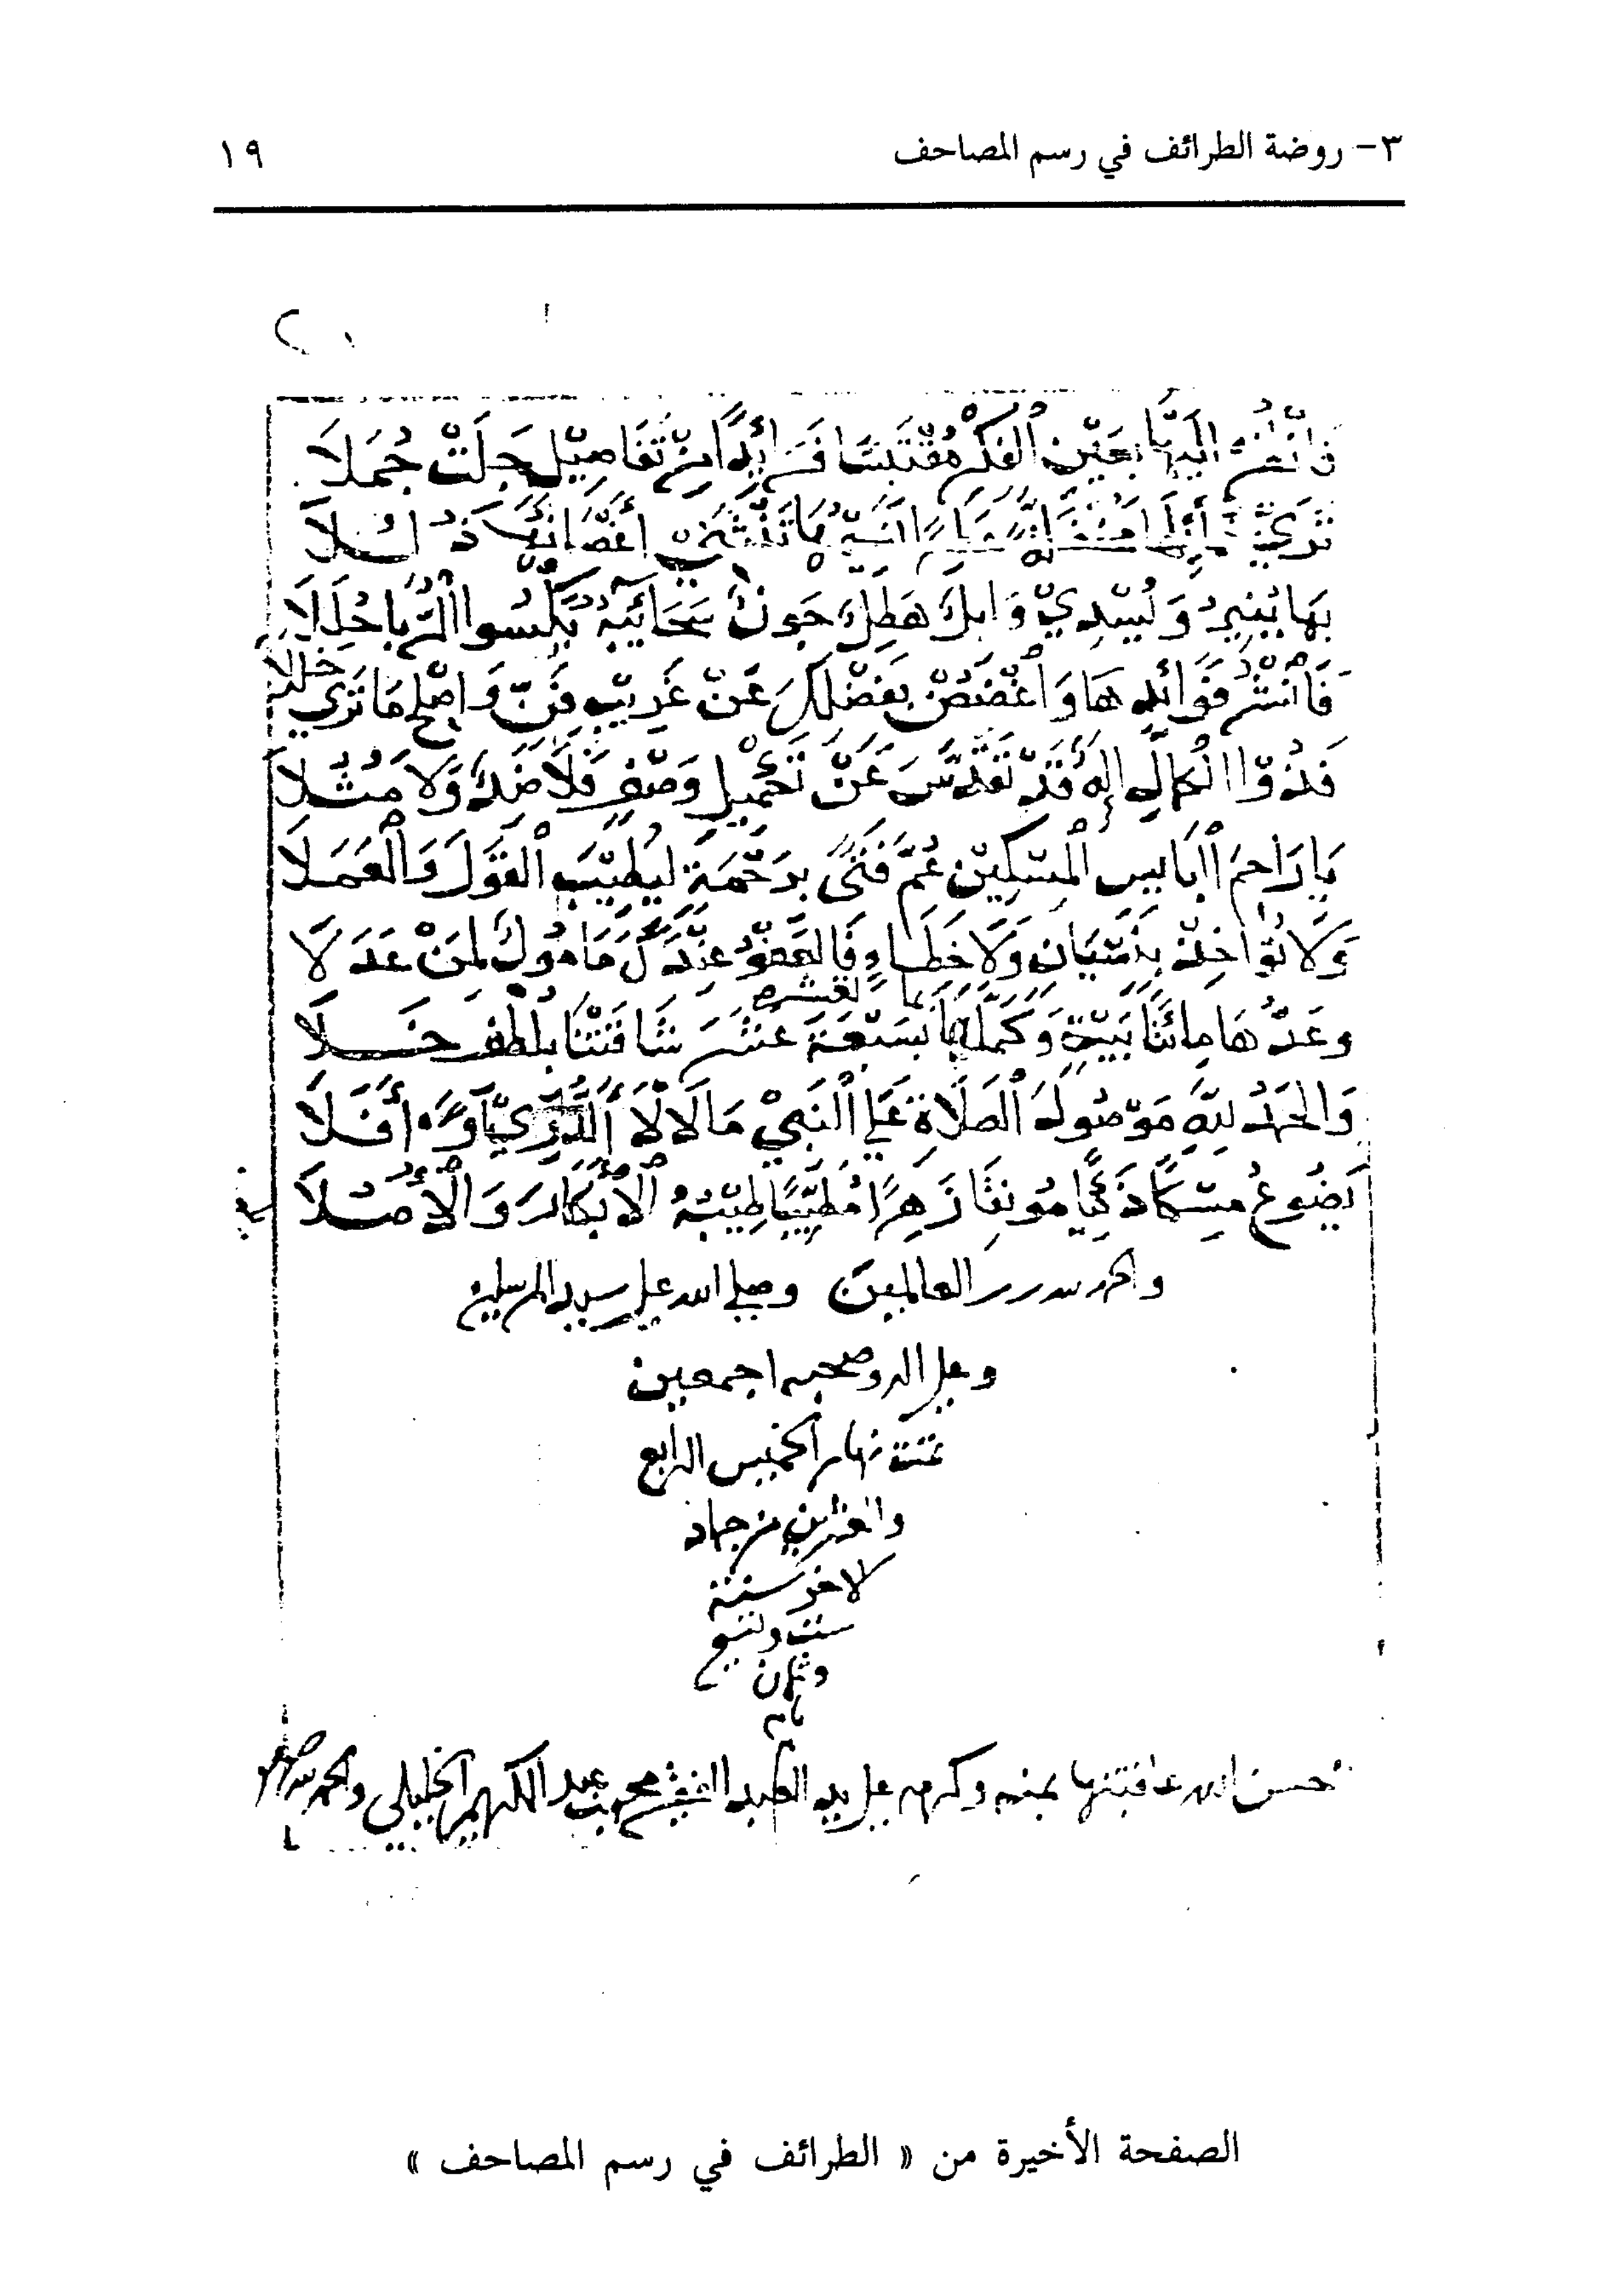 ٣- روضة الطرائف في رسم المصاحف
١٩
وَانْظُرْ إِلَيْهَا بِعَيْنِ الْفِكْرِ مُقْتَبِسًا فَرَائِدًا مِنْ تَفَاصِيْلٍ جَلَتْ جُمَلَا
أَغْصَانُهُ
بِهَا يُنِيرُ وَيُسْدِيْ وَابِلٌ هَطِلٌ جَوْنٌ سَحَائِبُهُ يَكْسُوا الرُّبَا حُلَلَا
فَانْشُرْ فَوَائِدَهَا وَاغْضُضْ بِفَضْلِكَ عَنْ غَرِيْبِ فَنٍّ وَاصْلِحْ مَا تَرَي خَلَلَا
فَذُوْ الْكَمَالِ إِلَهٌ قَدْ تَقَدَّسَ عَنْ تَحْمِيْلِ وَصْفٍ فَلَا ضِدٌّ وَلَا مُثُلَا
يَا رَاحِمَ الْبَايِسِ الْمِسْكِيْنِ عُمَّ فَتًى بِرَحْمَةٍ لِيُطِيْبَ الْقَوْلَ وَالْعَمَلَا
وَلَا تُوَاخِذْهُ بِنِسْيَانٍ وَلَا خَطَاءٍ فَالْعَفْوُ عِنْدَكَ مَامُولٌ لِمَنْ عَدَلَا
وعَدُّهَا مِائَتَا بَيْتٍ وَكَمَّلَهَا بِسَبْعَةَ عَشَرَ شَافَتْنَا بِلُطْفِ حَلَا
وَالْحَمْدُ لِلَّهِ مَوْصُولُ الصَّلَاةِ عَلَي النَّبِيْ مَا لَالَأَ الدُّرِّيُّ أَوْ أَفَلَا
يَضُوعُ مِسْكًا ذَكِيًّا مُونِقًا زَهِرًا مُطَيِّبًا طِيْبُهُ الْأَبْكَارَ وَالْأُصُلَا
والحمد لله رب العالمين وصلى الله على سيد المرسلين
وعلى اله وصحبه اجمعين
تمت نهار الخميس الرابع
والعشرين من جماد
لاخر سنة
ست وتسع
وثمان
مايه
احسن الله عاقبتها بمنه وكرمه على يد العبد الفقير محمد بن عبد الكريم الخليلي والحمد لله
الصفحة الأخيرة من « الطرائف في رسم المصاحف »